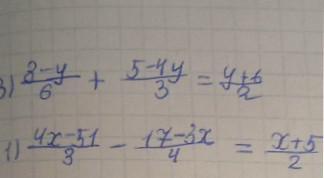 3) (3-y)/6 + (5-4y)/3 = (y+6)/2
1) (4x-51)/3 - (17-3x)/4 = (x+5)/2